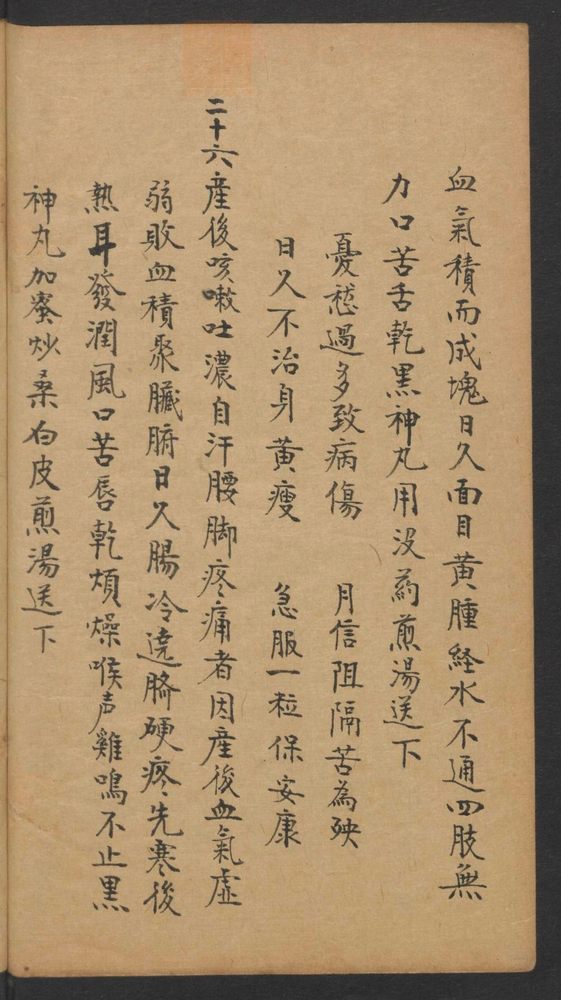 血氣積而成塊日久面目黃腫経水不通四肢無
力口苦舌乾黑神丸用没藥煎湯送下
憂愁過多致病傷　月信阻隔苦為殃
日久不治身黃瘦　急服一粒保安康
二十六産後咳嗽吐濃自汗腰脚疼痛者因産後血氣虛
弱敗血積聚臟腑日久腸冷遶臍硬疼先寒後
熱耳發潤風口苦唇乾煩燥喉声雞鳴不止黑
神丸加蜜炒桑白皮煎湯送下